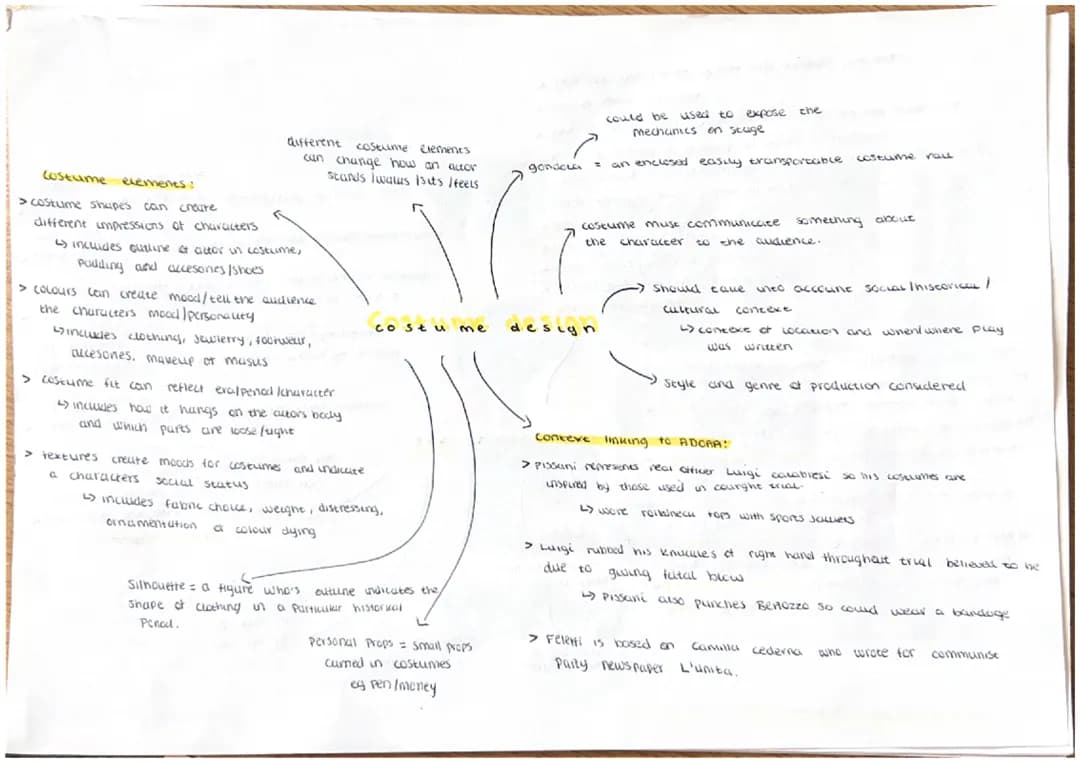 costume design
could be used to expose the
mechanics on stage
gondola = an enclosed easily transportable costume rail
different costume elements
can change how an actor
stands /walks /sits /feels
costume must communicate something about
the character to the audience.
should take into account social/historical /
cultural context
↳ context of location and when/where play
was written
style and genre of production considered
costume elements:
> costume shapes can create
different impressions of characters
↳ includes outline of actor in costume,
padding and accesories/shoes
> colours can create mood/tell the audience
the characters mood/personality
↳ includes clothing, jewlerry, footwear,
accesories, makeup or masks
> costume fit can reflect era/period/character
↳ includes how it hangs on the actors body
and which parts are loose/tight
> textures create moods for costumes and indicate
a characters social status
↳ includes fabric choice, weight, distressing,
ornamentation & colour dying
Silhouette = a figure who's outline indicates the
shape of clothing in a particular historical
period.
personal props = small props
carried in costumes
eg pen/money
context linking to ADOAA:
> pissani represents real officer Luigi calabresi so his costumes are
inspired by those used in courght trial.
↳ wore rollneck tops with sports jackets
> Luigi rubbed his knuckles of right hand throughout trial believed to be
due to giving fatal blow
↳ Pissani also punches Bertozzo so could wear a bandage
> Feletti is based on Camilla cederna who wrote for communist
party newspaper L'unita.